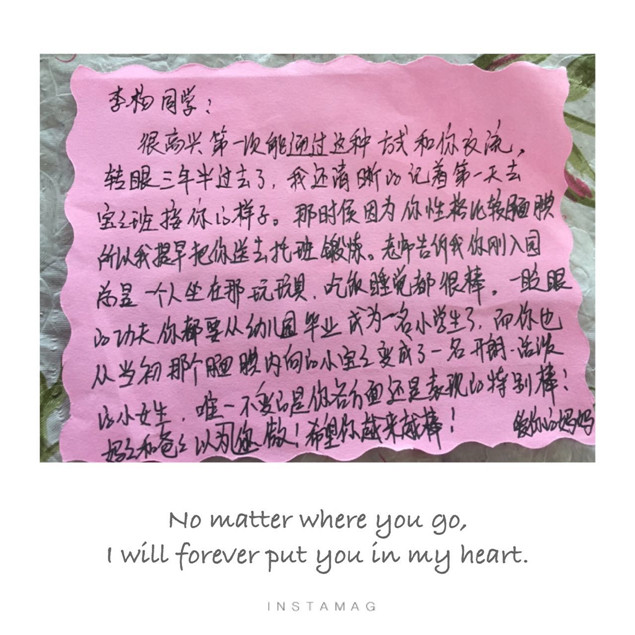 李杨同学：
很高兴第一次能通过这种方式和你交流，
转眼三年半过去了，我还清晰的记着第一天去
宝宝班接你的样子。那时候因为你性格比较腼腆
所以我提早把你送去托班锻炼。老师告诉我你刚入园
总是一个人坐在那玩玩具，吃饭睡觉都很棒。一眨眼
的功夫你都要从幼儿园毕业成为一名小学生了，而你也
从当初那个腼腆内向的小宝宝变成了一名开朗·活泼
的小女生，唯一不变的是你各方面还是表现的特别棒！
妈妈和爸爸以为你傲！希望你越来越棒！ 爱你的妈妈
No matter where you go,
I will forever put you in my heart.
INSTAMAG